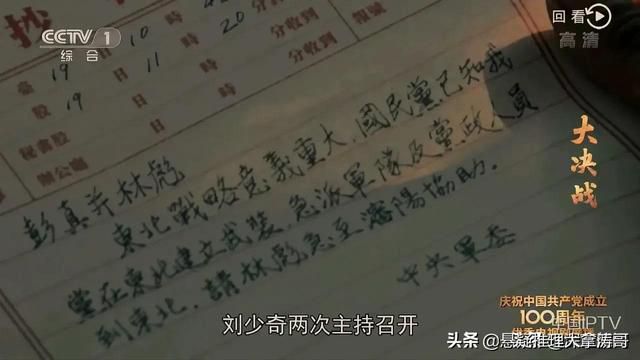 CCTV 1
综合
回看
高清
抄
10 時
20 分收到
分收到
報頭
臺 19 日 11 時
股 19 日
秘書股
辦公廳
彭真并林彪
東北戰略意義重大，國民黨已知我
黨在東北建立武裝，急派軍隊及黨政人員
到東北，請林彪急至瀋陽協助。
中央軍委
大决战
庆祝中国共产党成立
100周年
优秀电视剧展播
中国IPTV
刘少奇两次主持召开
头条 @悬疑推理大拿荫哥